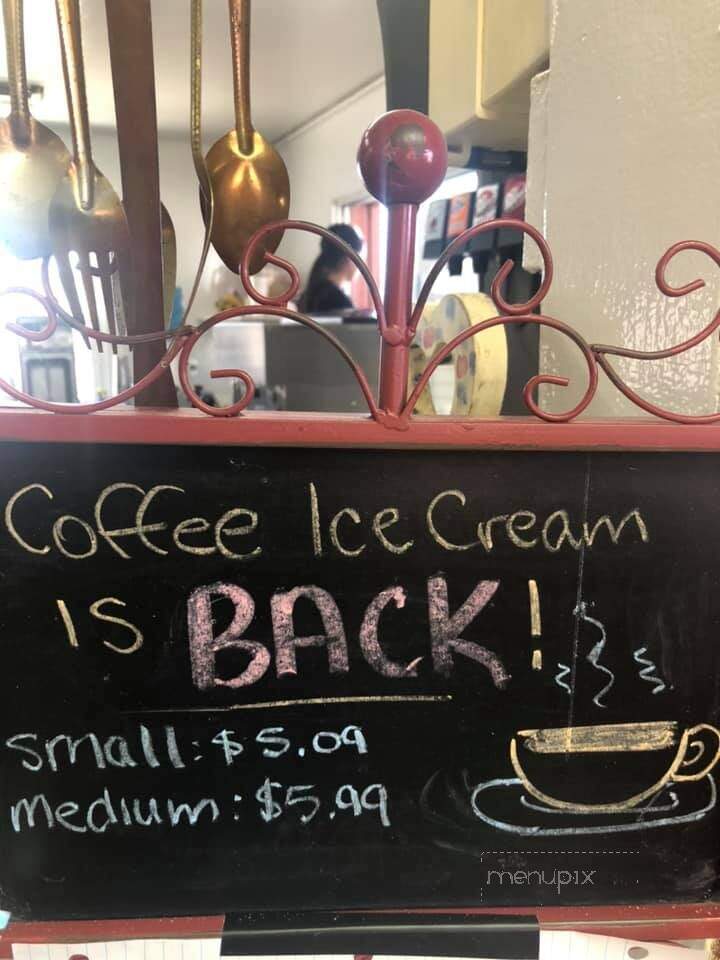 Coffee Ice Cream
is BACK!
small: $5.09
medium: $5.99
menupix